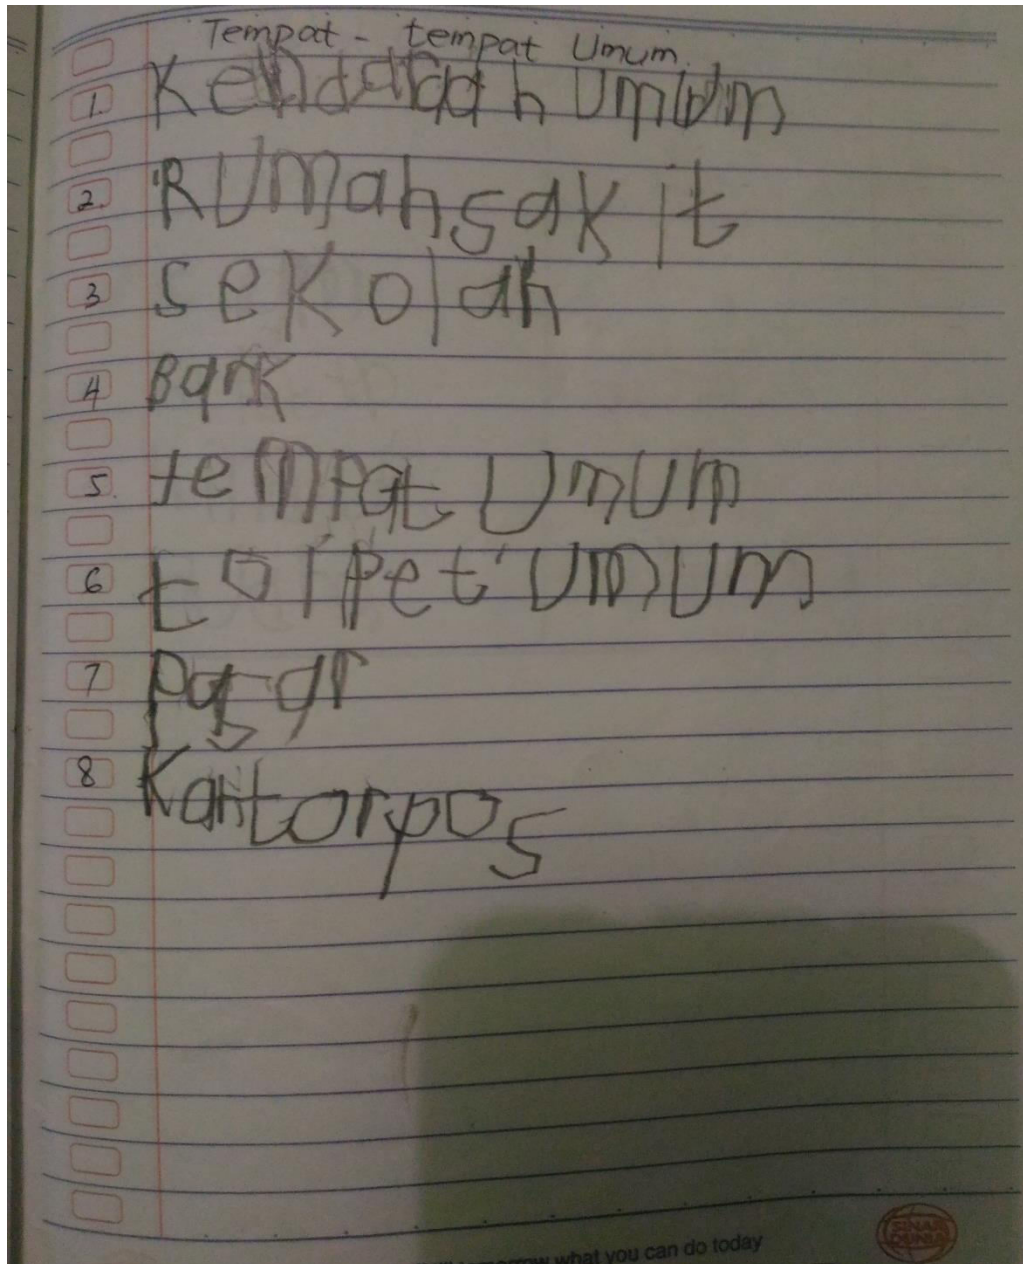 Tempat - tempat Umum
1. Kendaraah Umum
2. RUMahsakit
3 sekolah
4 Bank
5. tempat Umum
6 toipet Umum
7 Pasar
8 Kantorpos
what you can do today
SINAR DUNIA